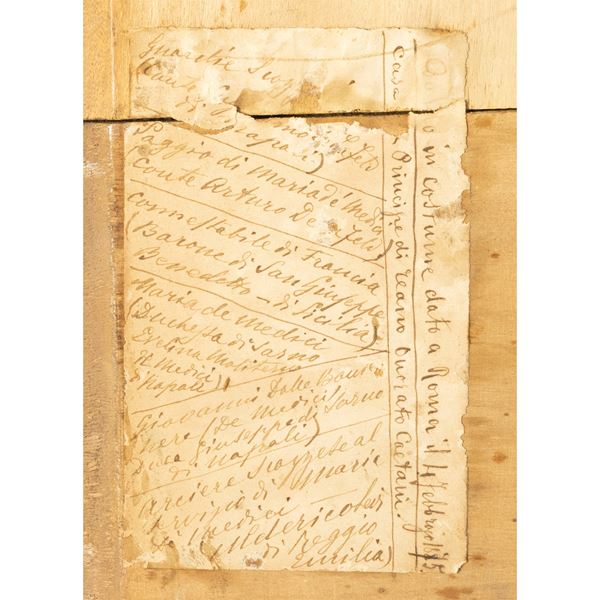 Guardie
(Conte
di Napoli)
Paggio di Maria de' Medici
(Conte Arturo De
Connestabile di Francia
(Barone di San Giuseppe
Benedetto - di Sicilia)
Maria de Medici
(Duchessa di Sarno
Evelina Moliterno
de Medici
di Napoli)
Giovanni Dalle Bande
Nere (De Medici
Duca Giuseppe di Sarno
di Napoli)
Arciere Scozzese al
servizio di Maria
de Medici
di Reggio
Emilia)
in costume dato a Roma il 4 Febbraio 1875.
Casa Principe di Teano Onorato Caetani.